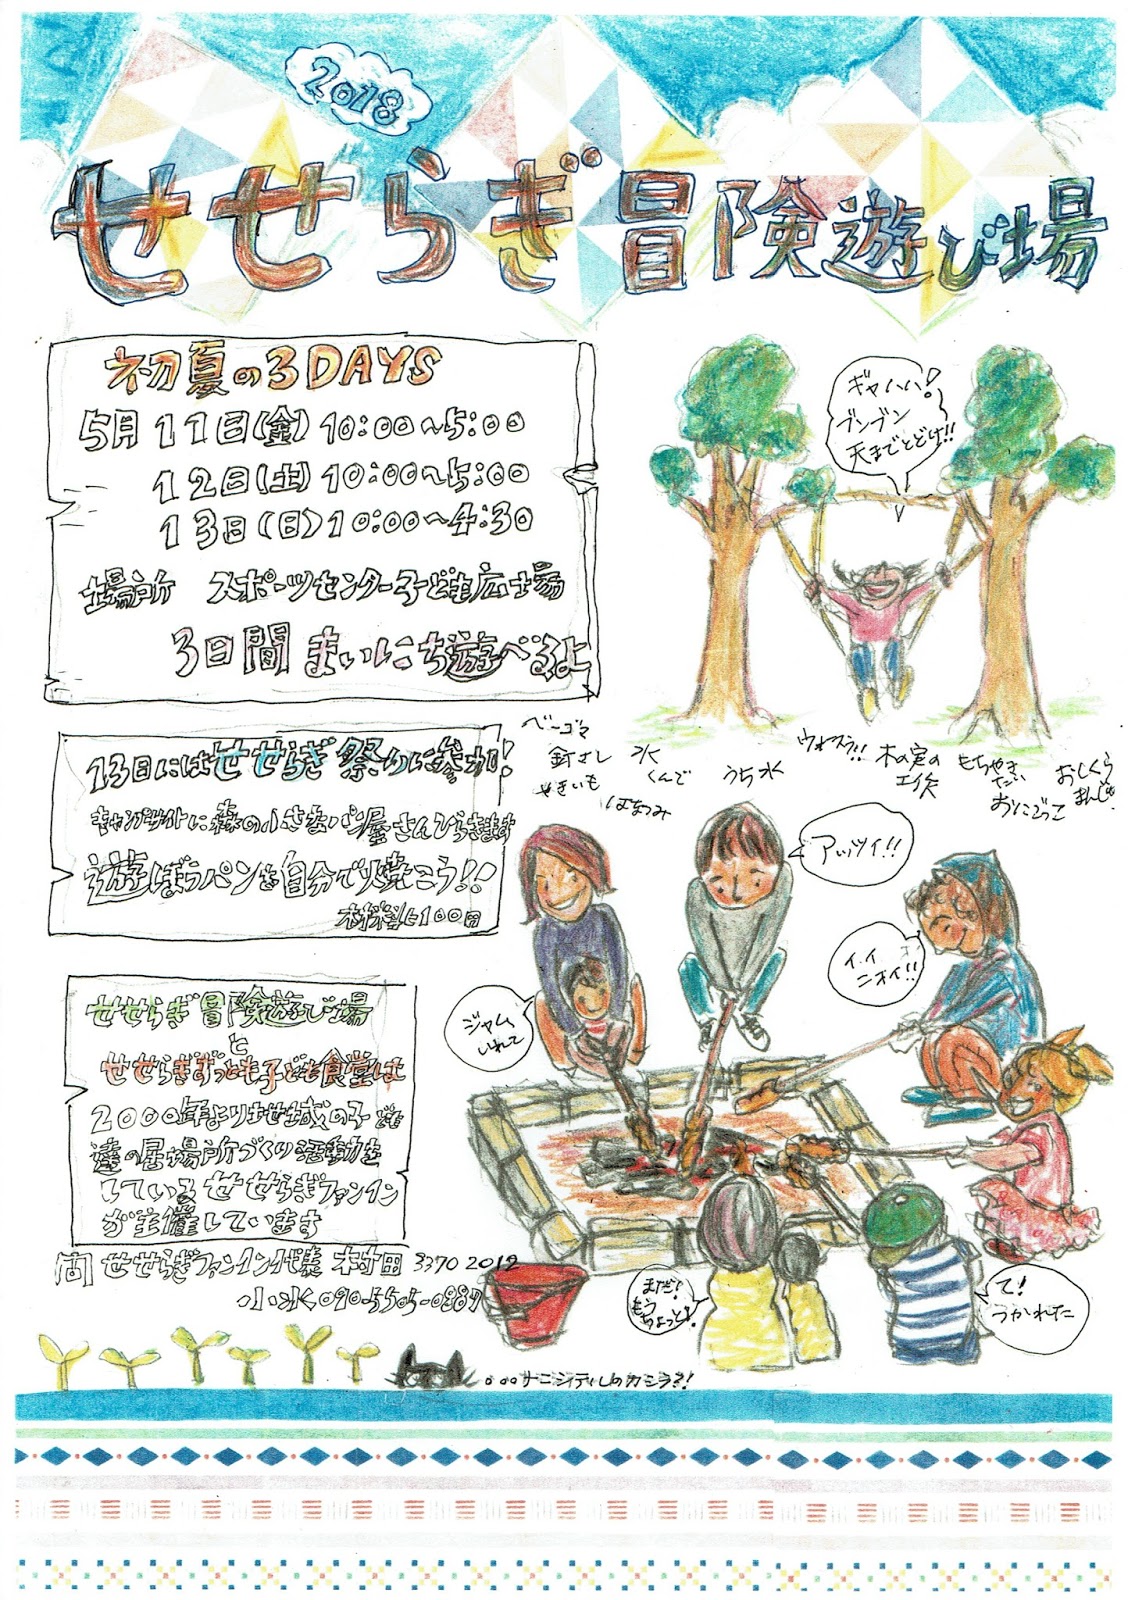 2018
せせらぎ冒険遊び場
初夏の3DAYS
5月11日(金)10:00~5:00
12日(土)10:00~5:00
13日(日)10:00~4:30
場所 スポーツセンター子ども広場
3日間 まいにち遊べるよ
ギャハハ!
ブンブン
天までとどけ!!
ベーゴマ
水
くんで
うち水
木の実の
工作
おにごっこ
おしくら
まんじゅ
13日にはせせらぎ祭りに参加!
キャンプサイトに森の小さなパン屋さんひらきます
遊ぼうパンを自分で焼こう!!
材料費100円
アッツイ!!
イイ
ニオイ!!
ジャム
いれて
せせらぎ冒険遊び場
と
せせらぎずっとも子ども食堂は
2000年より地域の子ども
達の居場所づくり活動を
しているせせらぎファンイン
が主催しています
問 せせらぎファンイン代表 村田 3370 2019
小水 090-5505-0887
まだ!
もう
ちょっと!
て!
うかれた